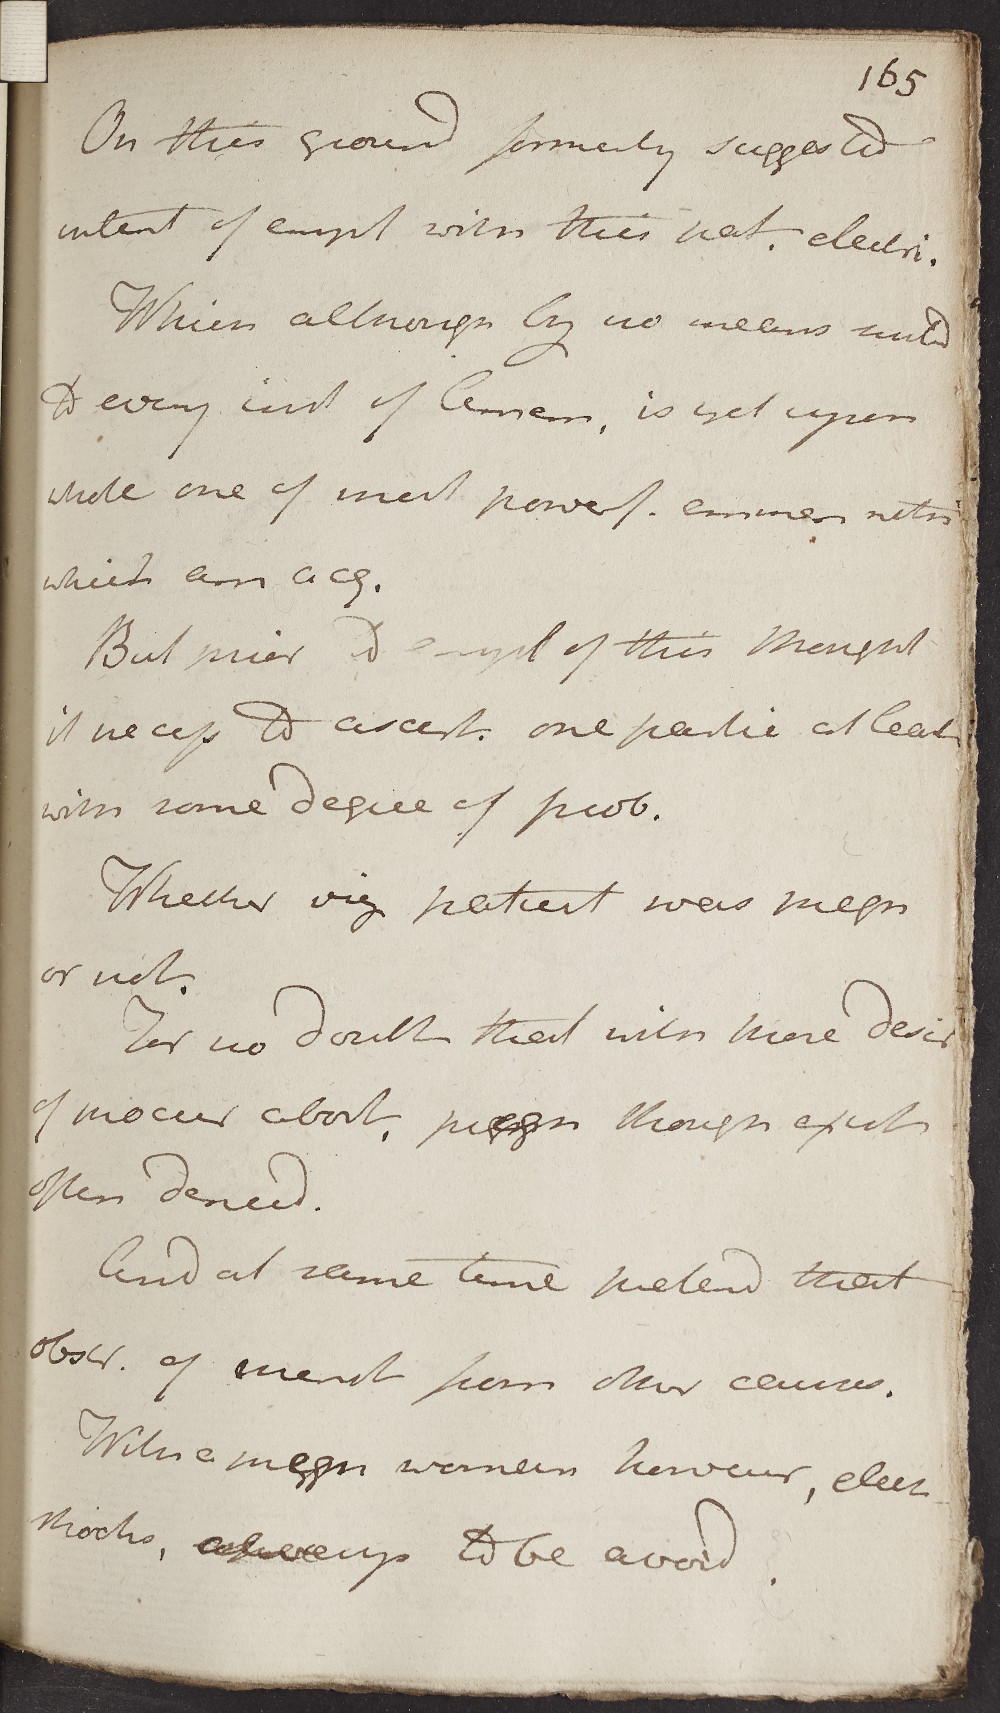 165
On this ground formerly suggested
intent of empl with this pat. electri.
Which although by no means suited
to every inst of Amen, is yet upon
whole one of most powerf. emmen
which am acq.
But prior to empl of this thought
it necess to ascert. one partic at least
with some degree of prob.
Whether viz patient was pregn
or not.
For no doubt that with these desir
of procur abort. pregn though exist
often denied.
And at same time pretend that
obstr. of menst from other causes.
With a pregn woman however, elect
shocks, always to be avoid.